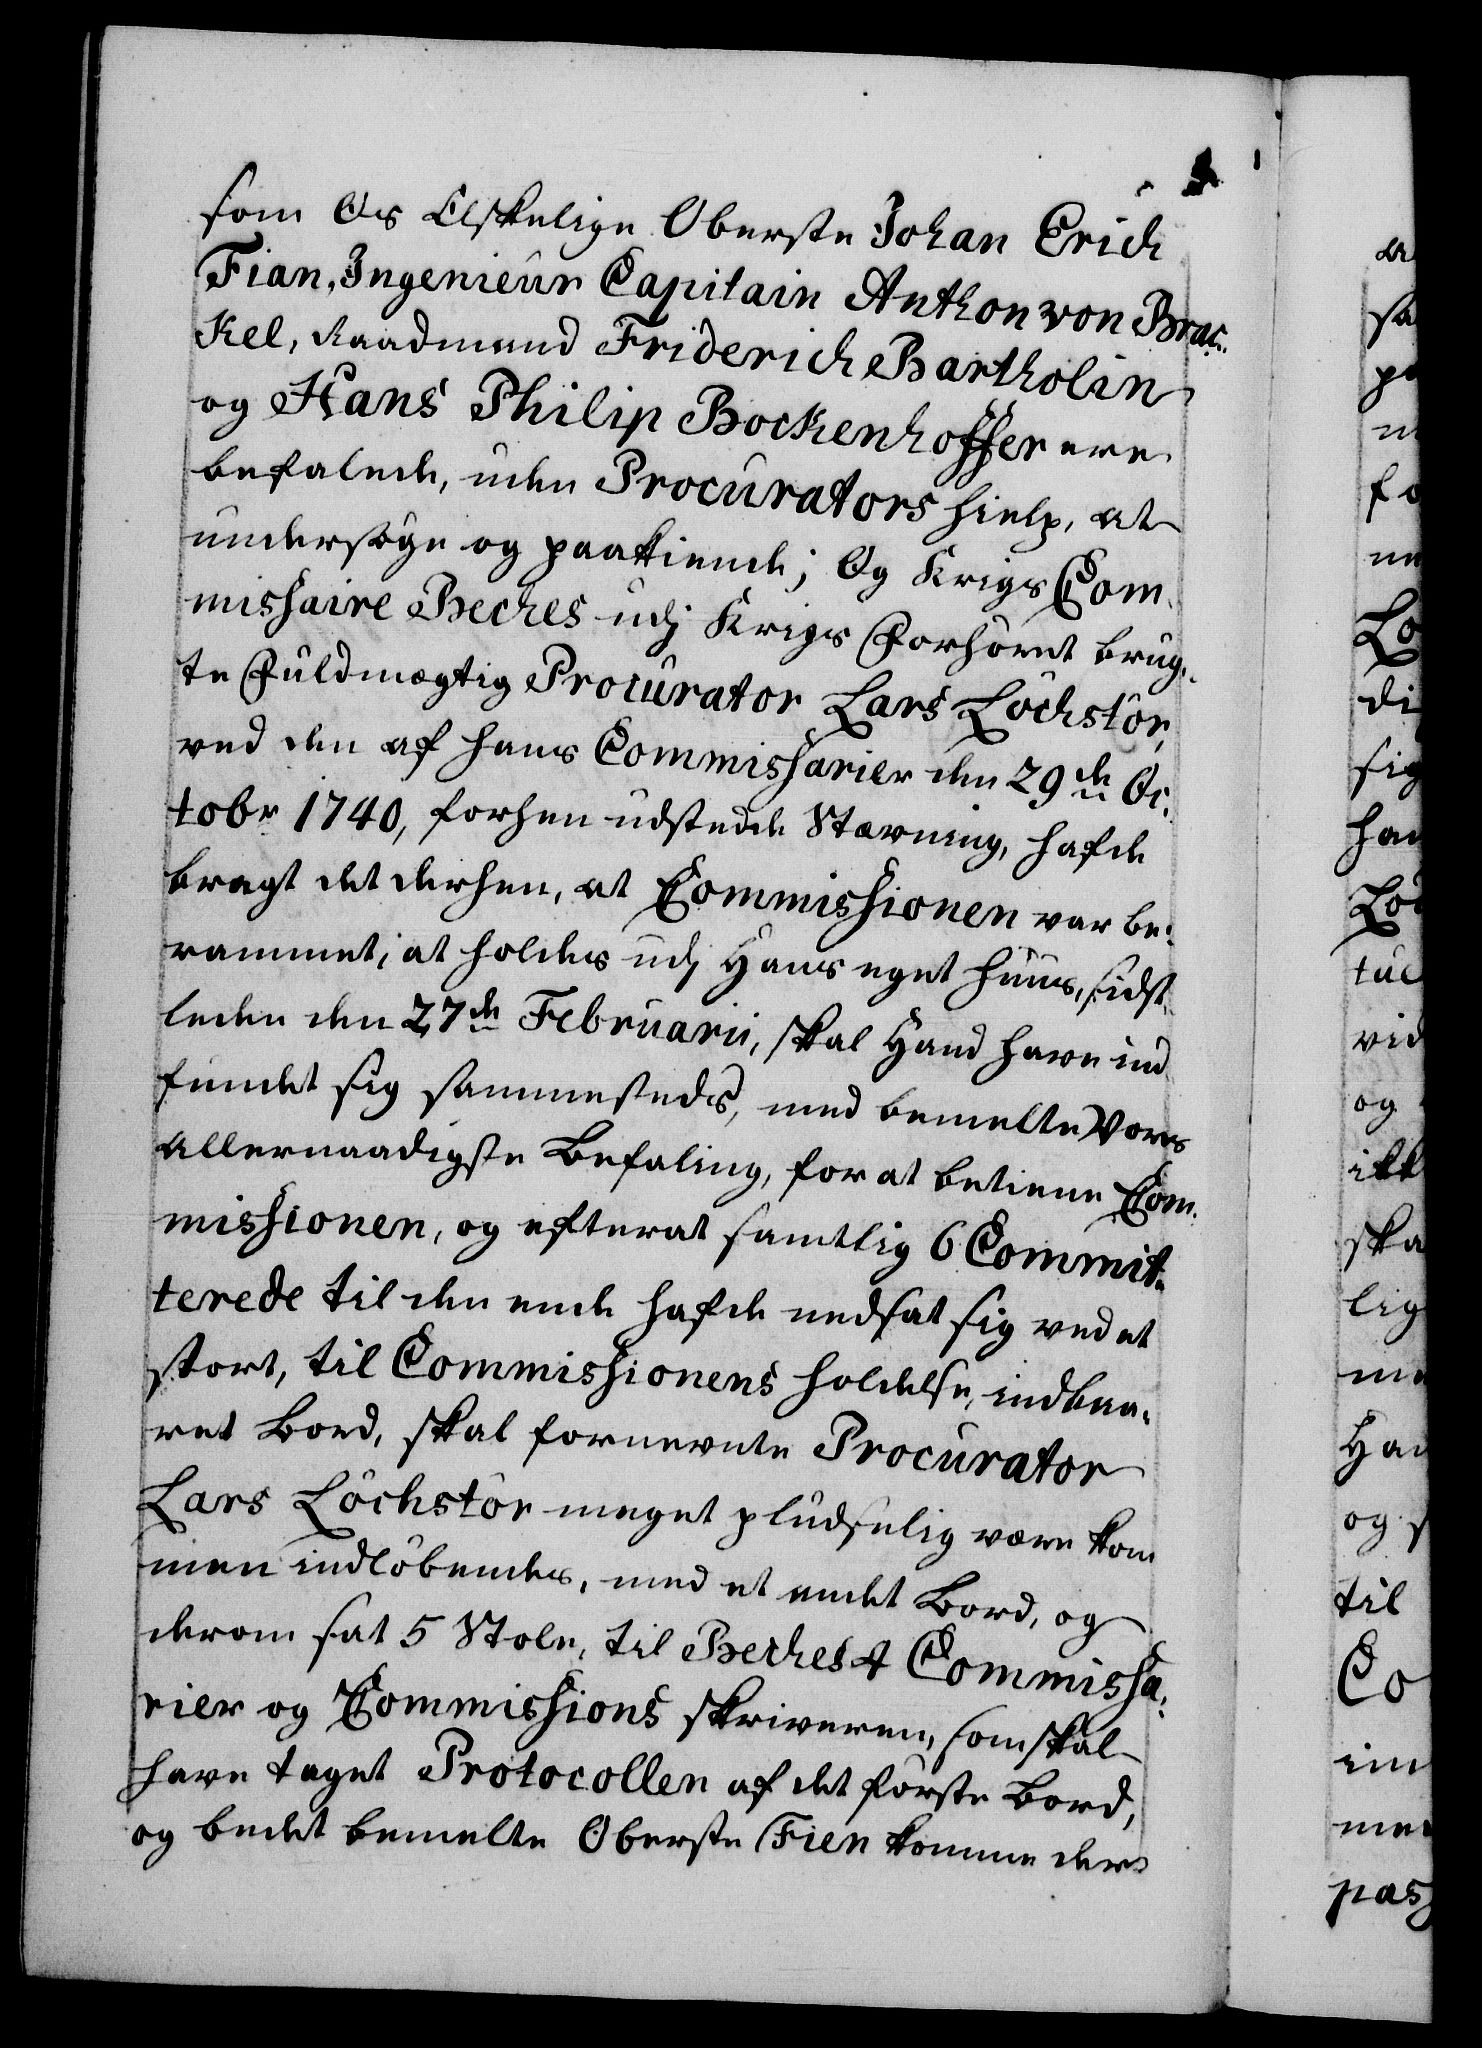 som Os Elskelige Oberste Johan Erich
Fian, Ingenieur Capitain Anthon von Brac-
kel, Raadmand Friderich Bartholin
og Hans Philip Bockenhoffer ere
befalede, uden Procurators hielp, at
undersøge og paakiende; Og Krigs Com-
missaire Beckes udj Krigs Forhøret brug-
te Fuldmægtig Procurator Lars Löchstör,
ved den af hans Commissarier den 29de Oc-
tobr 1740, forhen udstedde Stævning, hafde
bragt det derhen, at Commissionen var be-
rammet, at holdes udj Hans eget huus, sidst-
leden den 27de Februarii, skal Hand have ind
fundet sig sammesteds, med bemelte Vores
allernaadigste Befaling, for at betiene Com-
missionen, og efterat samtlig 6 Commit-
terede til den ende hafde nedsat sig ved et
stort, til Commissionens holdelse, indbaa-
ret Bord, skal fornevnte Procurator
Lars Löchstör meget pludselig være kom
men indløbendes, med et andet Bord, og
derom sat 5 Stole, til Beckes 4 Commissa-
rier og Commissions skriveren, som skal
have taget Protocollen af det første Bord,
og bedet bemelte Oberste Fien komme der